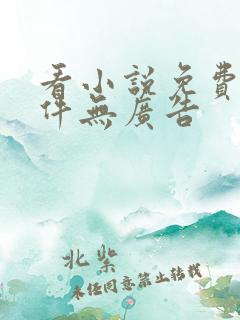 看小說免費
件無廣告
北柴
未经同意禁止转载